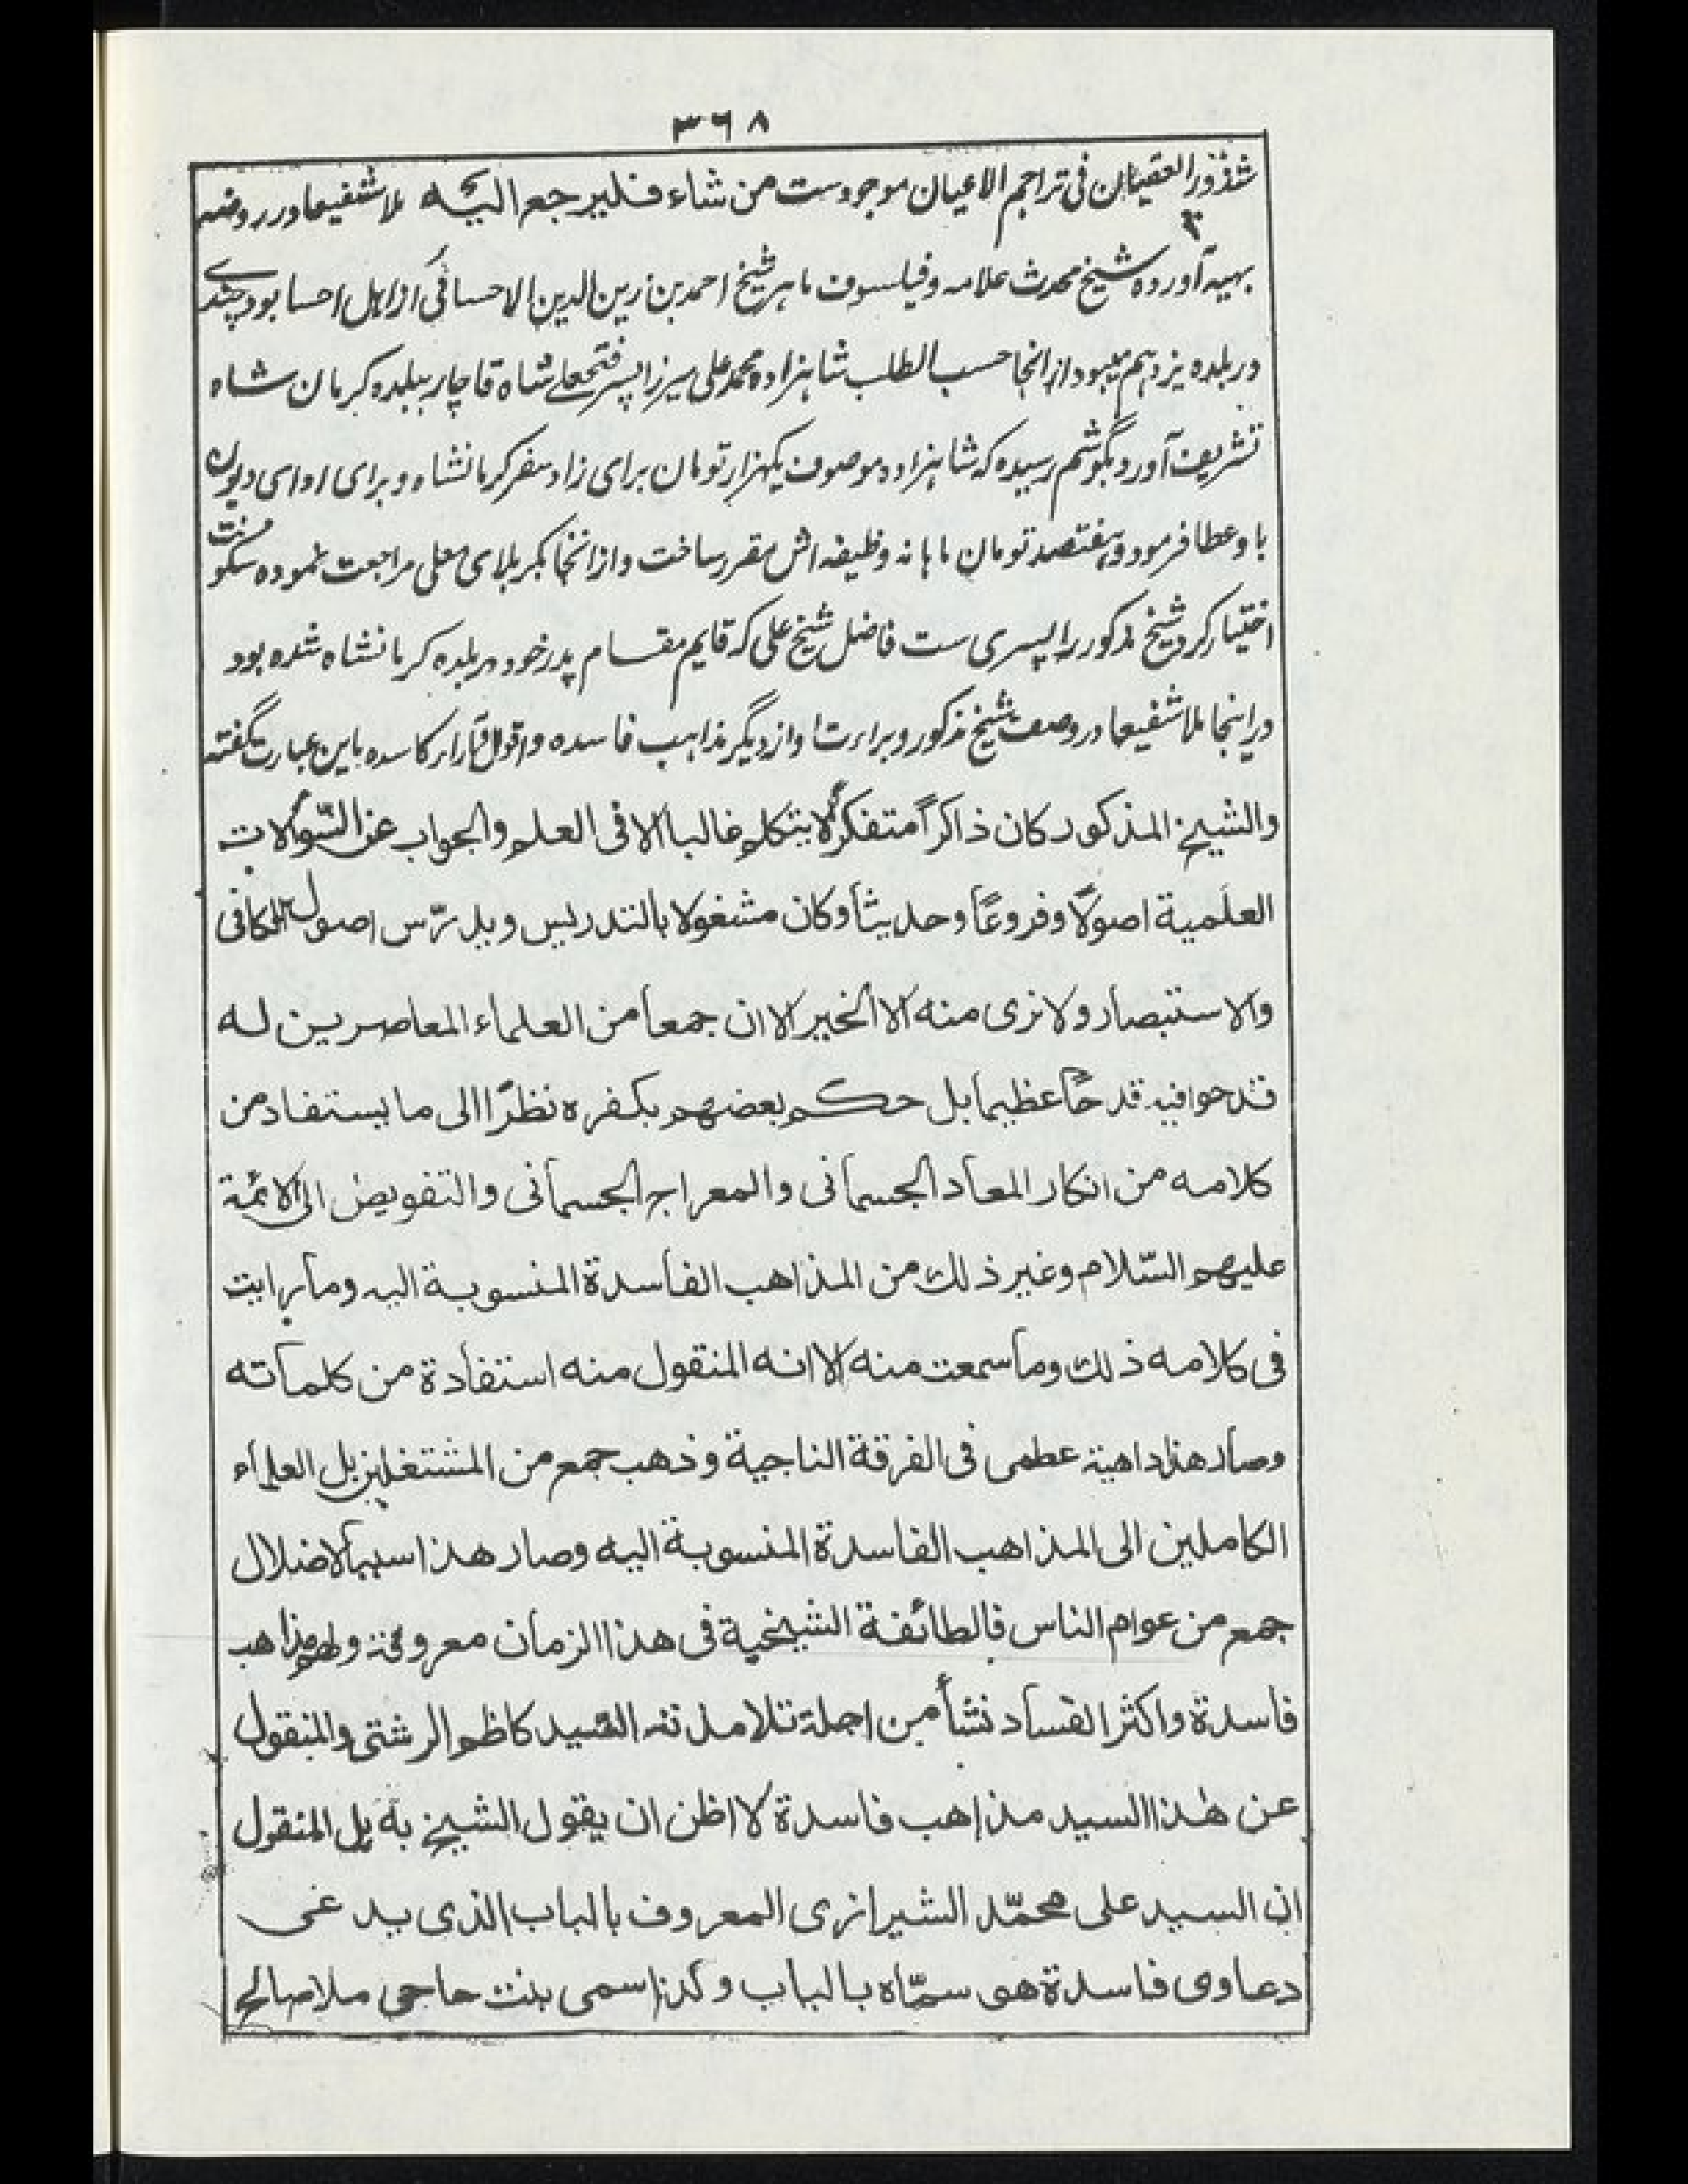 ٣٦٨
شذور العقیان فی تراجم الاعیان موجودست من شاء فلیرجع الیه ملا شفیعا در روضه
بهیه آورده شیخ محدث علامه و فیلسوف ماهر شیخ احمد بن زین الدین الاحسائی از اهل احسا بود چندے
در بلده یزد هم میبود از انجا حسب الطلب شاهزاده محمد علی میرزا پسر فتحعلے شاه قاچار ببلده کرمان شاه
تشریف آورد بگوشم رسیده که شاهزاده موصوف یکهزار تومان برای زاد سفر کرمانشاه و برای ادای دیون
باو عطا فرمود و هفتصد تومان ماهانه وظیفه اش مقرر ساخت و از انجا بکربلای معلی مراجعت نموده سکونت
اختیار کرد شیخ مذکور را پسری ست فاضل شیخ علی که قایم مقام پدر خود در بلده کرمانشاه شده بود
در اینجا ملا شفیعا در وصف شیخ مذکور و براءت او از دیگر مذاهب فاسده و اقوال و آراء کاسده باین عبارت گفته
والشیخ المذکور کان ذاکراً متفکراً لا یتکلم غالبا الا فی العلم والجواب عن السّؤالات
العلمیة اصولاً وفروعاً وحدیثاً وکان مشغولا بالتدریس ویدرّس اصول الکافی
والاستبصار ولا نری منه الا الخیر الا ان جمعا من العلماء المعاصرین له
قدحوا فیه قدحاً عظیما بل حکم بعضهم بکفره نظرًا الی ما یستفاد من
کلامه من انکار المعاد الجسمانی والمعراج الجسمانی والتفویض الی الائمة
علیهم السّلام وغیر ذلك من المذاهب الفاسدة المنسوبة الیه وما رایت
فی کلامه ذلك وما سمعت منه الا انه المنقول منه استفادة من کلماته
وصار هذا داهیة عظمی فی الفرقة الناجیة وذهب جمع من المشتغلین بل العلماء
الکاملین الی المذاهب الفاسدة المنسوبة الیه وصار هذا سببا لاضلال
جمع من عوام الناس فالطائفة الشیخیة فی هذا الزمان معروفة ولهم مذاهب
فاسدة واکثر الفساد نشأ من اجلة تلامذته السید کاظم الرشتی والمنقول
عن هذا السید مذاهب فاسدة لا اظن ان یقول الشیخ به بل المنقول
ان السید علی محمّد الشیرازی المعروف بالباب الذی یدعی
دعاوی فاسدة هو سمّاه بالباب وکذا سمی بنت حاجی ملا صالح